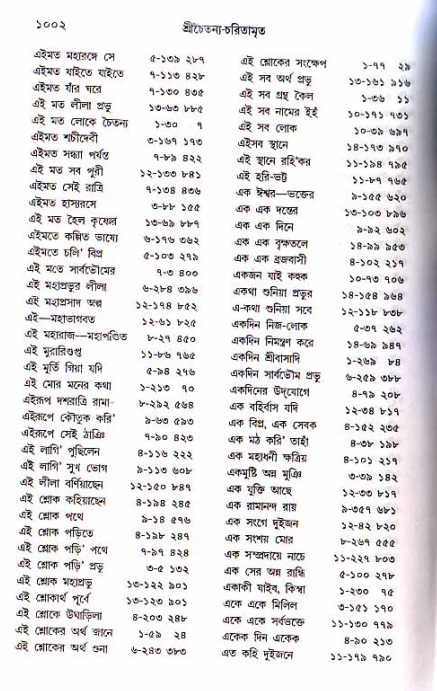 ১০০২
শ্রীচৈতন্য-চরিতামৃত
এইমত মহারঙ্গে সে ৫-১৩৯ ২৮৭
এইমত যাইতে যাইতে ৭-১১৩ ৪২৮
এইমত যাঁর ঘরে ৭-১৩০ ৪৩৫
এই মত লীলা প্রভু ১৩-৬৩ ৮৮৫
এই মত লোকে চৈতন্য ১-৩০ ৭
এইমত শচীদেবী ৩-১৬৭ ১৭৩
এইমত সন্ধ্যা পর্যন্ত ৭-৮৯ ৪২২
এই মত সব পুরী ১২-১৩৩ ৮৪১
এইমত সেই রাত্রি ৭-১৩৪ ৪৩৬
এইমত হাস্যরসে ৩-৮৮ ১৫৫
এই মত হৈল কৃষ্ণের ১৩-৬৯ ৮৮৭
এইমতে কল্পিত ভাষ্যে ৬-১৭৬ ৩৬২
এইমতে চলি' বিপ্র ৫-১০৩ ২৭৯
এই মতে সার্বভৌমের ৭-৩ ৪০০
এই মহাপ্রভুর লীলা ৬-২৮৪ ৩৯৬
এই মহাপ্রসাদ অল্প ১২-১৭৪ ৮৫২
এই—মহাভাগবত ১২-৬১ ৮২৫
এই মহারাজ—মহাপণ্ডিত ৮-২৭ ৪৫০
এই মুরারিগুপ্ত ১১-৮৬ ৭৬৫
এই মূর্তি গিয়া যদি ৫-৯৪ ২৭৬
এই মোর মনের কথা ১-২১৩ ৭০
এইরূপ দশরাত্রি রামা- ৮-২৯২ ৫৬৪
এইরূপে কৌতুক করি' ৯-৬৩ ৫৯৩
এইরূপে সেই ঠাঞি ৭-৯০ ৪২৩
এই লাগি' পুছিলেন ৪-১১৬ ২২২
এই লাগি' সুখ ভোগ ৯-১১৩ ৬০৮
এই লীলা বর্ণিয়াছেন ১২-১৫০ ৮৪৭
এই শ্লোক কহিয়াছেন ৪-১৯৪ ২৪৫
এই শ্লোক পথে ৯-১৪ ৫৭৬
এই শ্লোক পড়িতে ৪-১৯৮ ২৪৭
এই শ্লোক পড়ি' পথে ৭-৯৭ ৪২৪
এই শ্লোক পড়ি' প্রভু ৩-৫ ১৩২
এই শ্লোক মহাপ্রভু ১৩-১২২ ৯০১
এই শ্লোকার্থ পূর্বে ১৩-১২৩ ৯০১
এই শ্লোকে উঘাড়িলা ৪-২০৩ ২৪৮
এই শ্লোকের অর্থ জানে ১-৫৯ ২৪
এই শ্লোকের অর্থ শুনা ৬-২৪৩ ৩৮৩
এই শ্লোকের সংক্ষেপ ১-৭৭ ২৯
এই সব অর্থ প্রভু ১৩-১৬১ ৯১৬
এই সব গ্রন্থ কৈল ১-৩৬ ১১
এই সব নামের ইহঁ ১০-১৭১ ৭৩১
এই সব লোক ১০-৩৯ ৬৯৭
এইসব স্থানে ১৪-১৭৩ ৯৭০
এই স্থানে রহি'কর ১১-১৯৪ ৭৯৫
এই হরি-ভট্ট ১১-৮৭ ৭৬৫
এক ঈশ্বর—ভক্তের ৯-১৫৫ ৬২০
এক এক দন্তের ১৩-১০৩ ৮৯৬
এক এক দিনে ৯-৯২ ৬০২
এক এক বৃক্ষতলে ১৪-৯৯ ৯৫৩
এক এক ব্রজবাসী ৪-১০২ ২১৭
একজন যাই কহুক ১০-৭৩ ৭০৬
একথা শুনিয়া প্রভুর ১৪-১৫৪ ৯৬৪
এ-কথা শুনিয়া সবে ১২-১১৮ ৮৩৮
একদিন নিজ-লোক ৫-৩৭ ২৬২
একদিন নিমন্ত্রণ করে ১৪-৬৯ ৯৪৭
একদিন শ্রীবাসাদি ১-২৬৯ ৮৪
একদিন সার্বভৌম প্রভু ৬-২৫৯ ৩৮৮
একদিনের উদ্‌যোগে ৪-৭৯ ২০৮
এক বহির্বাস যদি ১২-৩৪ ৮১৭
এক বিপ্র, এক সেবক ৪-১৫২ ২৩৫
এক মঠ করি' তাহাঁ ৪-৩৮ ১৯৮
এক মহাধনী ক্ষত্রিয় ৪-১০১ ২১৭
একমুষ্টি অন্ন মুঞি ৩-৩৯ ১৪২
এক যুক্তি আছে ১২-৩৩ ৮১৭
এক রামানন্দ রায় ৯-৩৫৭ ৬৮১
এক সংগে দুইজন ১২-৪২ ৮২০
এক সংশয় মোর ৮-২৬৭ ৫৫৫
এক সম্প্রদায়ে নাচে ১১-২২৭ ৮০৩
এক সের অন্ন রান্ধি ৫-১০০ ২৭৮
একাকী যাইব, কিম্বা ১-২৩০ ৭৫
একে একে মিলিল ৩-১৫১ ১৭০
একে একে সর্বভক্তে ১১-১৩০ ৭৭৯
একেক দিন একেক ৪-৯০ ২১৩
এত কহি দুইজনে ১১-১৭৯ ৭৯০